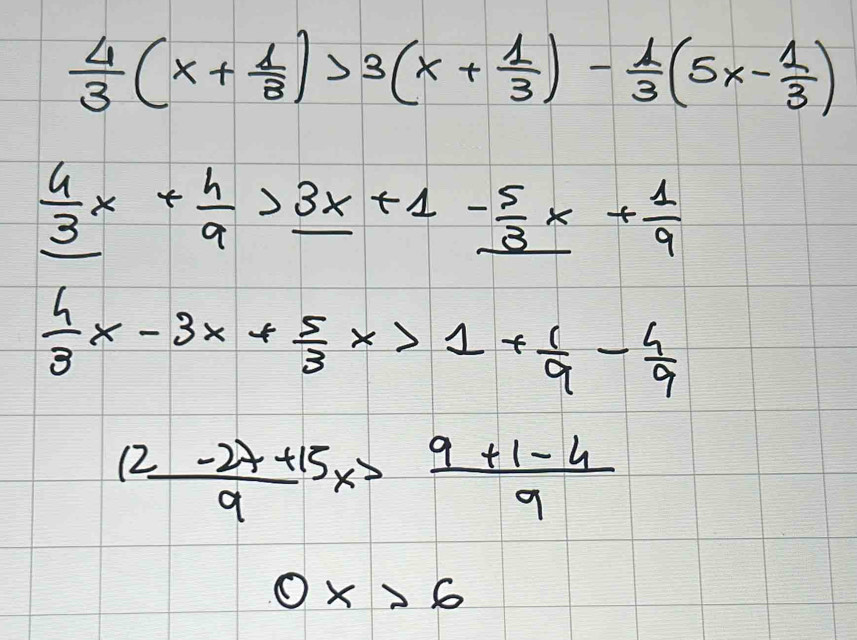 4/3 (x + 1/3) > 3(x + 1/3) - 1/3(5x - 1/3)
4/3 x + 4/9 > 3x + 1 - 5/3 x + 1/9
4/3 x - 3x + 5/3 x > 1 + 1/9 - 4/9
(12 - 27 + 15)/9 x > (9 + 1 - 4)/9
0x > 6